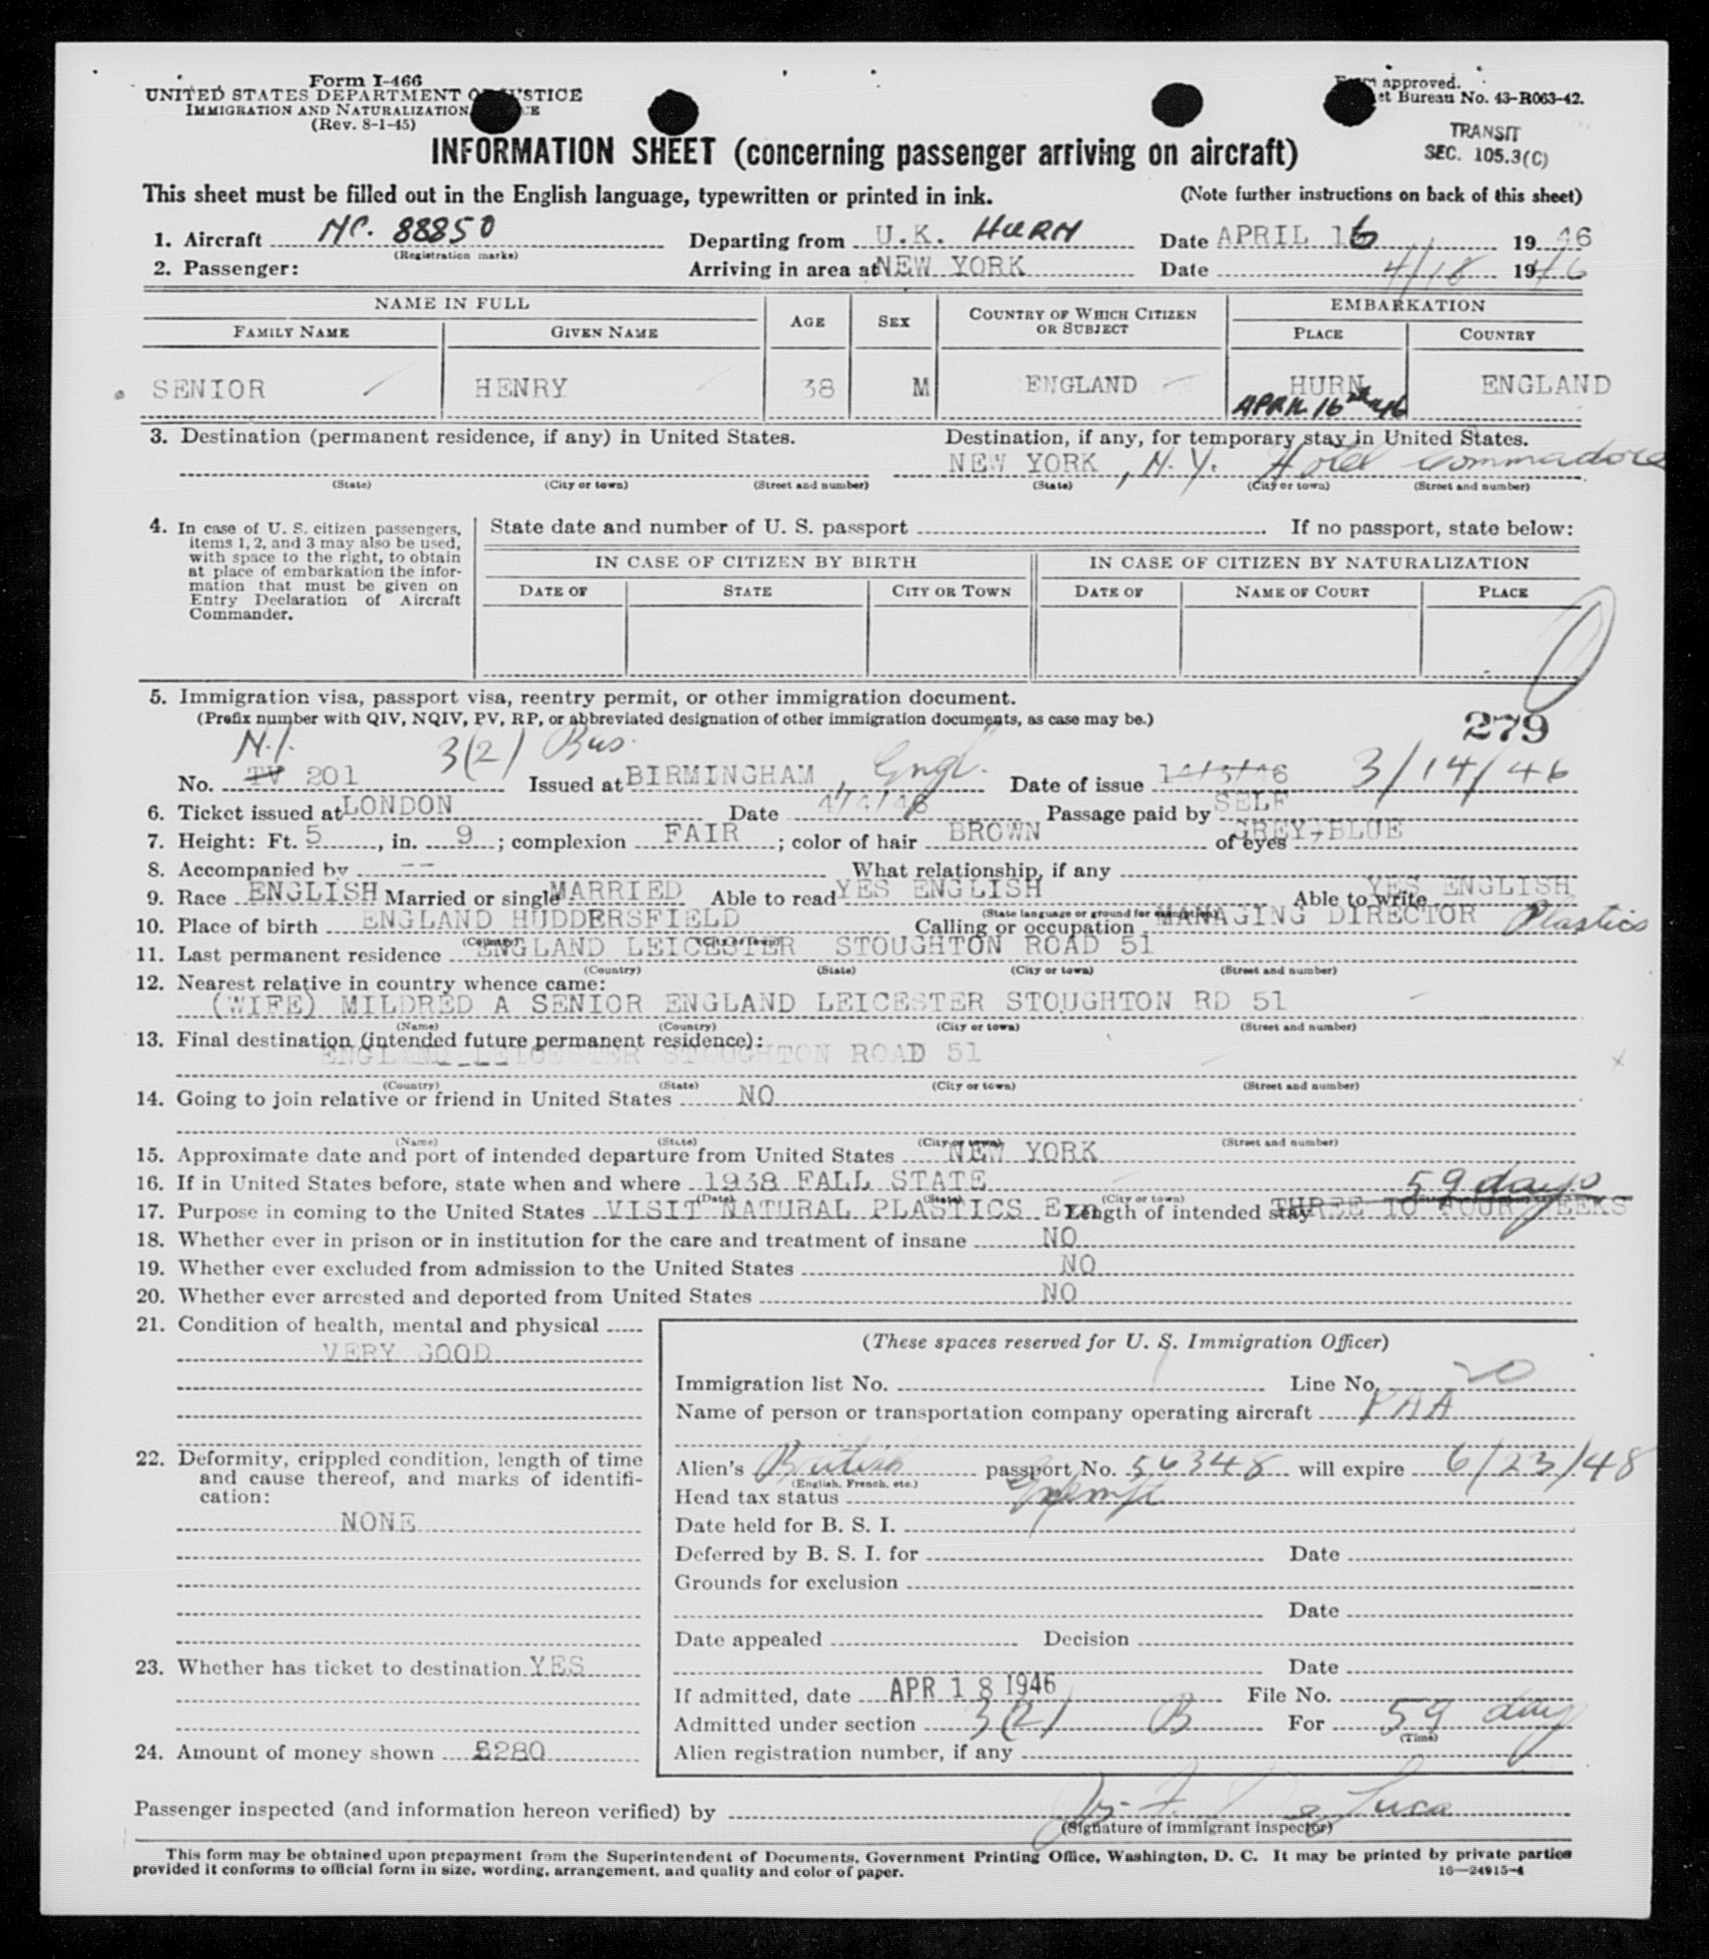 Form I-466
UNITED STATES DEPARTMENT OF JUSTICE
IMMIGRATION AND NATURALIZATION
(Rev. 8-1-45)
approved.
Bureau No. 43-R063-42.
TRANSIT
SEC. 105.3(C)
INFORMATION SHEET (concerning passenger arriving on aircraft)
This sheet must be filled out in the English language, typewritten or printed in ink. (Note further instructions on back of this sheet)
1. Aircraft NC. 88850 Departing from U.K. HURN Date APRIL 16 1946
(Registration marks)
2. Passenger: Arriving in area at NEW YORK Date 4/18 1946
NAME IN FULL AGE SEX COUNTRY OF WHICH CITIZEN OR SUBJECT EMBARKATION
FAMILY NAME GIVEN NAME PLACE COUNTRY
SENIOR HENRY 38 M ENGLAND HURN ENGLAND
APRIL 16th 46
3. Destination (permanent residence, if any) in United States. Destination, if any, for temporary stay in United States.
NEW YORK, N.Y. Hotel Commadore
(State) (City or town) (Street and number) (State) (City or town) (Street and number)
4. In case of U. S. citizen passengers, items 1, 2, and 3 may also be used, with space to the right, to obtain at place of embarkation the information that must be given on Entry Declaration of Aircraft Commander.
State date and number of U. S. passport If no passport, state below:
IN CASE OF CITIZEN BY BIRTH IN CASE OF CITIZEN BY NATURALIZATION
DATE OF STATE CITY OR TOWN DATE OF NAME OF COURT PLACE
5. Immigration visa, passport visa, reentry permit, or other immigration document.
(Prefix number with QIV, NQIV, PV, RP, or abbreviated designation of other immigration documents, as case may be.)
279
N.I. 3(2) Bus.
No. TV 201 Issued at BIRMINGHAM, Engl. Date of issue 14/3/46 3/14/46
6. Ticket issued at LONDON Date 4/4/46 Passage paid by SELF
7. Height: Ft. 5, in. 9; complexion FAIR; color of hair BROWN of eyes GREY-BLUE
8. Accompanied by -- What relationship, if any
9. Race ENGLISH Married or single MARRIED Able to read YES ENGLISH Able to write YES ENGLISH
(State language or ground for exemption)
10. Place of birth ENGLAND HUDDERSFIELD Calling or occupation MANAGING DIRECTOR Plastics
(Country) (City or town)
11. Last permanent residence ENGLAND LEICESTER STOUGHTON ROAD 51
(Country) (State) (City or town) (Street and number)
12. Nearest relative in country whence came:
(WIFE) MILDRED A SENIOR ENGLAND LEICESTER STOUGHTON RD 51
(Name) (Country) (City or town) (Street and number)
13. Final destination (intended future permanent residence):
ENGLAND LEICESTER STOUGHTON ROAD 51
(Country) (State) (City or town) (Street and number)
14. Going to join relative or friend in United States NO
(Name) (State) (City or town) (Street and number)
15. Approximate date and port of intended departure from United States NEW YORK
16. If in United States before, state when and where 1938 FALL STATE 59 days
(Date) (State) (City or town)
17. Purpose in coming to the United States VISIT NATURAL PLASTICS Length of intended stay THREE TO FOUR WEEKS
18. Whether ever in prison or in institution for the care and treatment of insane NO
19. Whether ever excluded from admission to the United States NO
20. Whether ever arrested and deported from United States NO
21. Condition of health, mental and physical
VERY GOOD
22. Deformity, crippled condition, length of time and cause thereof, and marks of identification:
NONE
23. Whether has ticket to destination YES
24. Amount of money shown $280
(These spaces reserved for U. S. Immigration Officer)
Immigration list No. Line No. 20
Name of person or transportation company operating aircraft PAA
Alien's British passport No. 56348 will expire 6/23/48
(English, French, etc.)
Head tax status Exempt
Date held for B. S. I.
Deferred by B. S. I. for Date
Grounds for exclusion
Date
Date appealed Decision
Date
If admitted, date APR 18 1946 File No.
Admitted under section 3(2) B For 59 days
(Time)
Alien registration number, if any
Passenger inspected (and information hereon verified) by De Luca
(Signature of immigrant inspector)
This form may be obtained upon prepayment from the Superintendent of Documents, Government Printing Office, Washington, D. C. It may be printed by private parties
provided it conforms to official form in size, wording, arrangement, and quality and color of paper. 16—24915-4